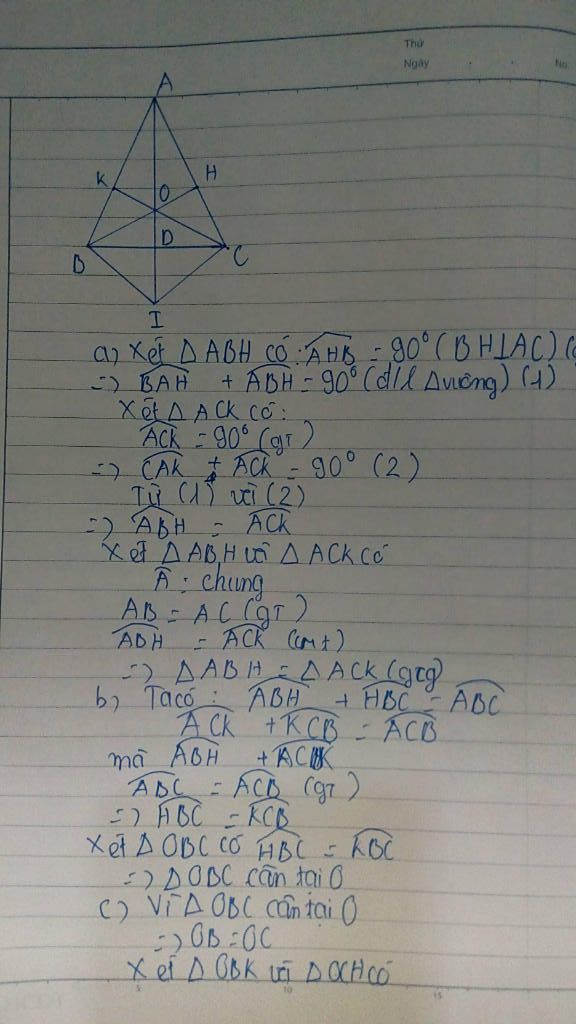 Thứ
Ngày
No.
A
K
H
O
B
D
C
I
a) Xét △ABH có: AHB = 90° (BH⊥AC) (
=> BAH + ABH = 90° (đ/l △vuông) (1)
Xét △ACK có:
ACK = 90° (gT)
=> CAK + ACK = 90° (2)
Từ (1) với (2)
=> ABH = ACK
Xét △ABH và △ACK có
A : chung
AB = AC (gT)
ABH = ACK (cmt)
=> △ABH = △ACK (gcg)
b) Ta có : ABH + HBC = ABC
ACK + KCB = ACB
mà ABH + ACK
ABC = ACB (gT)
=> HBC = KCB
Xét △OBC có HBC = KBC
=> △OBC cân tại O
c) Vì △OBC cân tại O
=> OB = OC
Xét △OBK và △OCH có
5
10
15